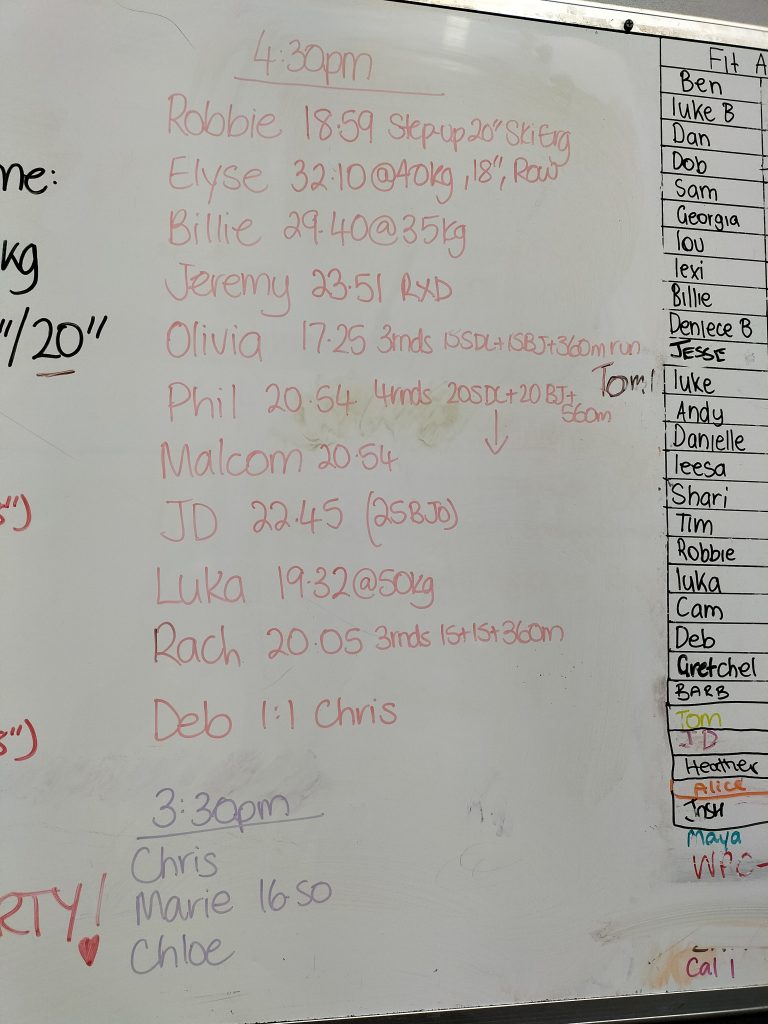 me:
kg
"/20"
8")
8")
RTY!
4:30pm
Robbie 18:59 Step-up 20" Ski Erg
Elyse 32:10@40kg, 18", Row
Billie 29.40@35kg
Jeremy 23.51 RXD
Olivia 17.25 3rnds 15SDL+15BJ+360m run
Phil 20.54 4rnds 20SDL+20BJ+
560m
Malcom 20.54
JD 22.45 (25BJO)
Luka 19.32@50kg
Rach 20.05 3rnds 15+15+360m
Deb 1:1 Chris
3:30pm
Chris
Marie 16.50
Chloe
Tom!
Fit A
Ben
luke B
Dan
Dob
Sam
Georgia
lou
lexi
Billie
Deniece B
JESSE
luke
Andy
Danielle
leesa
Shari
Tim
Robbie
luka
Cam
Deb
Gretchel
BARB
Tom
JD
Heather
Alice
Josh
Maya
Cal 1